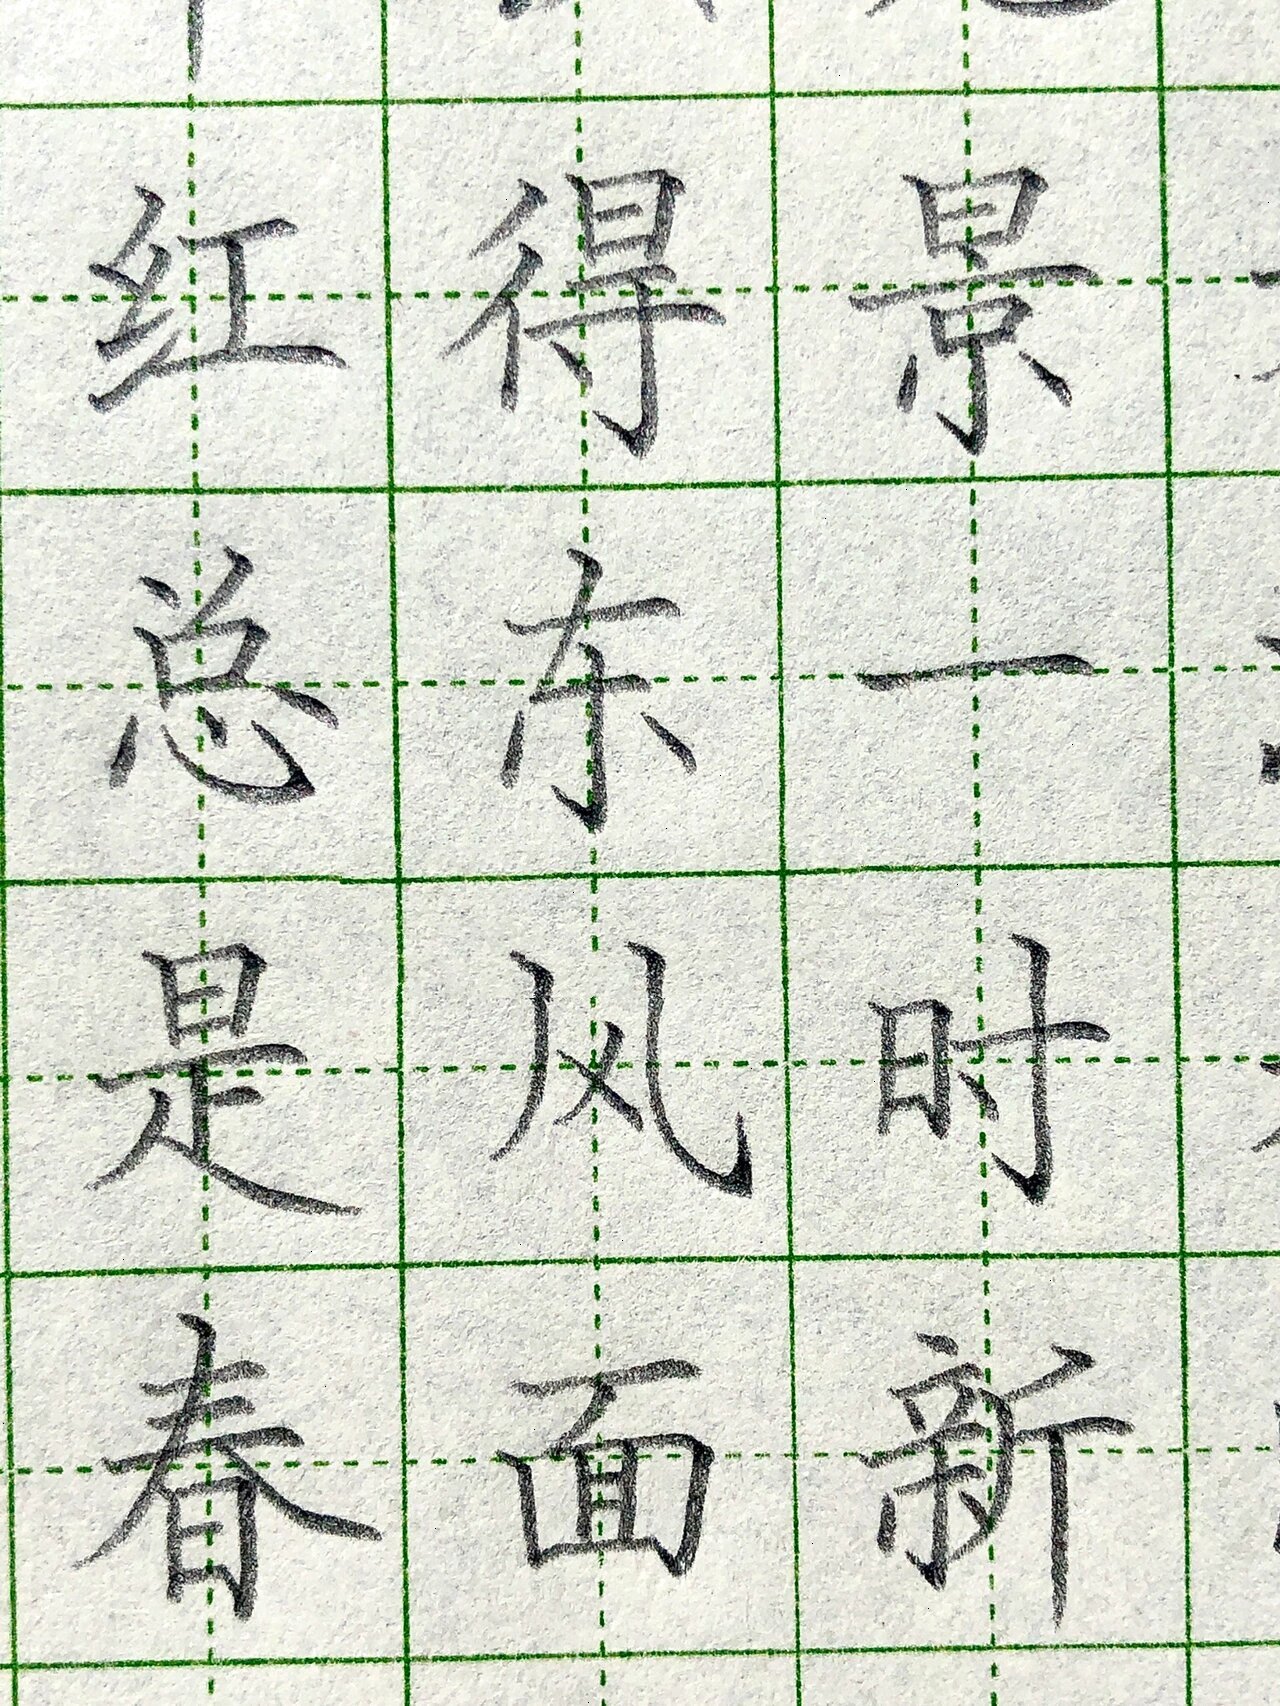 景一时新
得东风面
红总是春